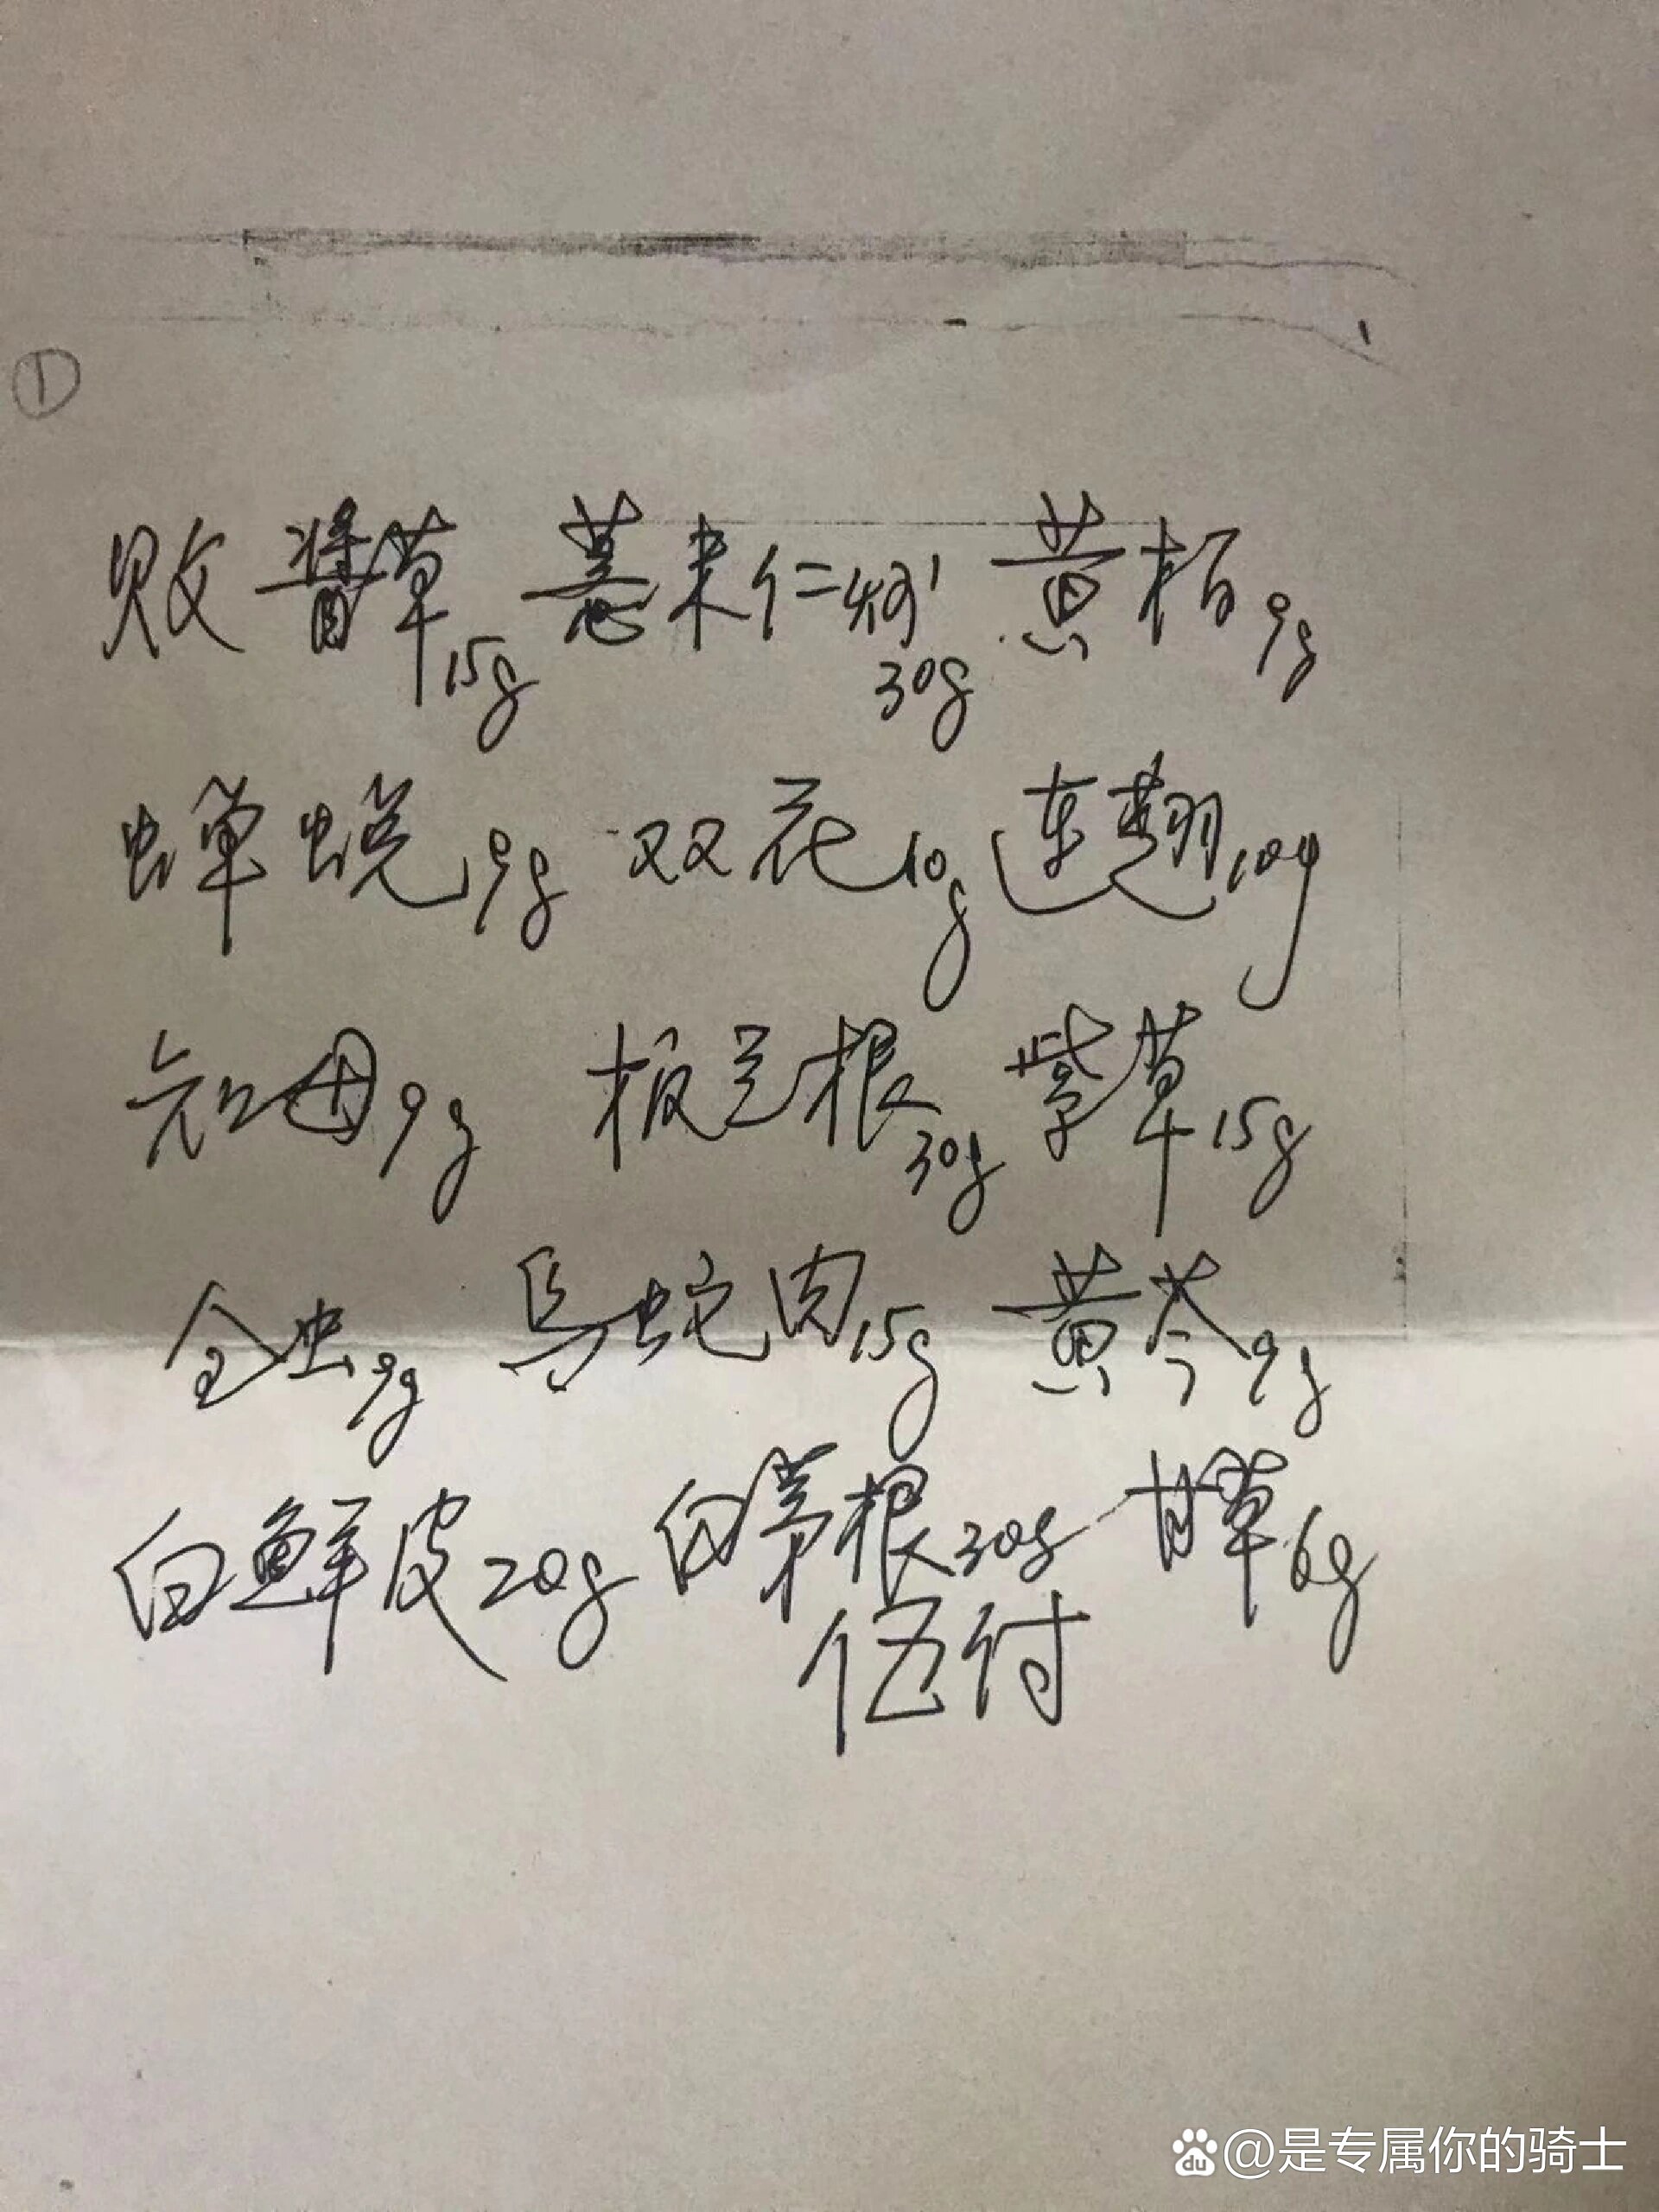 ①
败酱草15g 薏米仁炒30g 黄柏9g
蝉蜕9g 双花10g 连翘10g
知母9g 板兰根30g 紫草15g
全虫9g 乌蛇肉15g 黄芩9g
白鲜皮20g 白茅根30g 甘草6g
伍付
du @是专属你的骑士